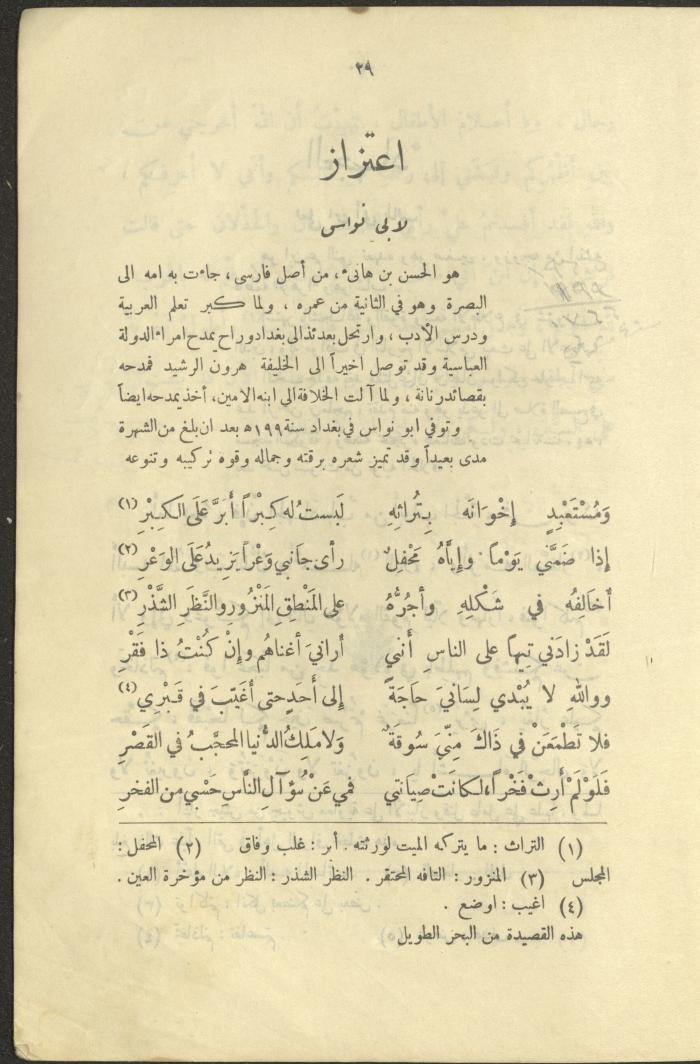 ٢٩
اعتزاز
لابي نواس
هو الحسن بن هانىء، من أصل فارسي، جاءت به امه الى
البصرة وهو في الثانية من عمره ، ولما كبر تعلم العربية
ودرس الأدب ، وارتحل بعدئذ الى بغداد وراح يمدح امراء الدولة
العباسية وقد توصل اخيراً الى الخليفة هرون الرشيد فمدحه
بقصائد رنانة ، ولما آلت الخلافة الى ابنه الامين، أخذ يمدحه ايضاً
وتوفي ابو نواس في بغداد سنة ١٩٩ ه بعد ان بلغ من الشهرة
مدى بعيداً وقد تميز شعره برقته وجماله وقوة تركيبه وتنوعه
وَمُسْتَعْبِدٍ إِخْوَانَه بِتُراثِهِ لَبَستُ له كِبْراً أَبَرَّ عَلَى الكِبْرِ (١)
إذا ضَمَّني يَوْماً وإِيَّاهُ مَحْفِلٌ رأى جَانبي وَعْراً يَزيدُ عَلَى الوَعْرِ (٢)
أخالِفُه في شَكْلِهِ وأجُرُّهُ على المَنْطِقِ المَنْزُورِ والنَّظَرِ الشَّذْرِ (٣)
لَقَدْ زادَني تيهاً على الناسِ أنني أرانيَ أغناهُم وإنْ كُنْتُ ذا فَقْرِ
وواللهِ لا يُبْدي لِسَانيَ حَاجَةً إلى أَحَدٍ حتى أغَيَّبَ في قَبْرِي (٤)
فلا تَطْمَعَنْ في ذَاكَ مِنّيَ سُوقَةٌ وَلا مَلِكُ الدُّنيا المحجَّبُ في القَصْرِ
فَلَوْ لَمْ أَرِثْ فَخْراً، لكانَتْ صِيَانتي فمي عَنْ سُؤآلِ النَّاسِ حَسْبي من الفخرِ
(١) التراث : ما يتركه الميت لورثته. أبر : غلب وفاق (٢) المحفل :
المجلس (٣) المنزور : التافه المحتقر . النظر الشذر : النظر من مؤخرة العين .
(٤) اغيب : اوضع .
هذه القصيدة من البحر الطويل